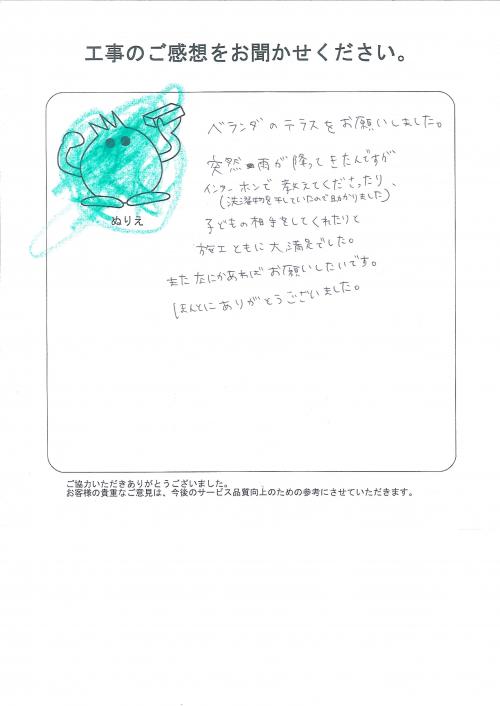 工事のご感想をお聞かせください。
ぬりえ
ベランダのテラスをお願いしました。
突然雨が降ってきたんですが
インターホンで教えてくださったり、
(洗濯物を干していたので助かりました)
子どもの相手をしてくれたりと
施工ともに大満足でした。
またなにかあればお願いしたいです。
ほんとにありがとうございました。
ご協力いただきありがとうございました。
お客様の貴重なご意見は、今後のサービス品質向上のための参考にさせていただきます。